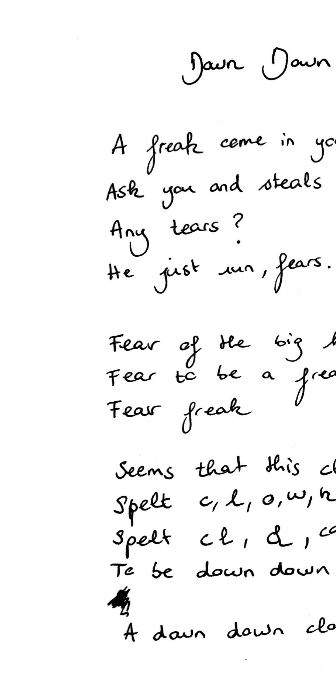 Down Down
A freak come in yo
Ask you and steals
Any tears?
He just run, fears.
Fear of the big
Fear to be a frea
Fear freak
Seems that this cl
Spelt c, l, o, w, n
Spelt cl, d, co
To be down down
A down down clo